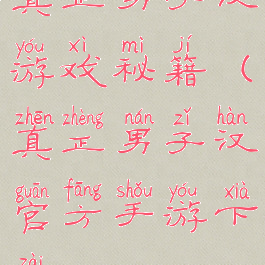 真正男子汉
yóu xì mì jí
游戏秘籍（
zhēn zhèng nán zǐ hàn
真正男子汉
guān fāng shǒu yóu xià
官方手游下
zài